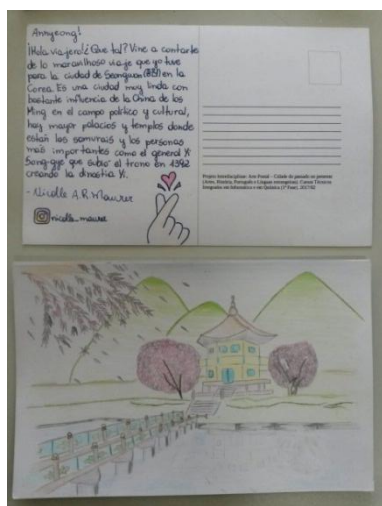 Annyeong!
¡Hola viajero! ¿Que tal? Vine a contarte
de lo maravilloso viaje que yo tuve
para la ciudad de Seongwan en la
Corea. Es una ciudad muy linda con
bastante influencia de la China de los
Ming en el campo político y cultural,
hay mayor palacios y templos donde
están los samurais y los personas
más importantes como el general Yi
Song-gye que subio' el trono en 1392
creando la dinastia Yi.
- Nicolle A. R. Maurer
nicolle_maurer
Projeto Interdisciplinar: Arte Postal - Cidade do passado no presente
(Artes, História, Português e Línguas estrangeiras). Cursos Técnicos
Integrados em Informática e em Química (1ª Fase). 2017/02